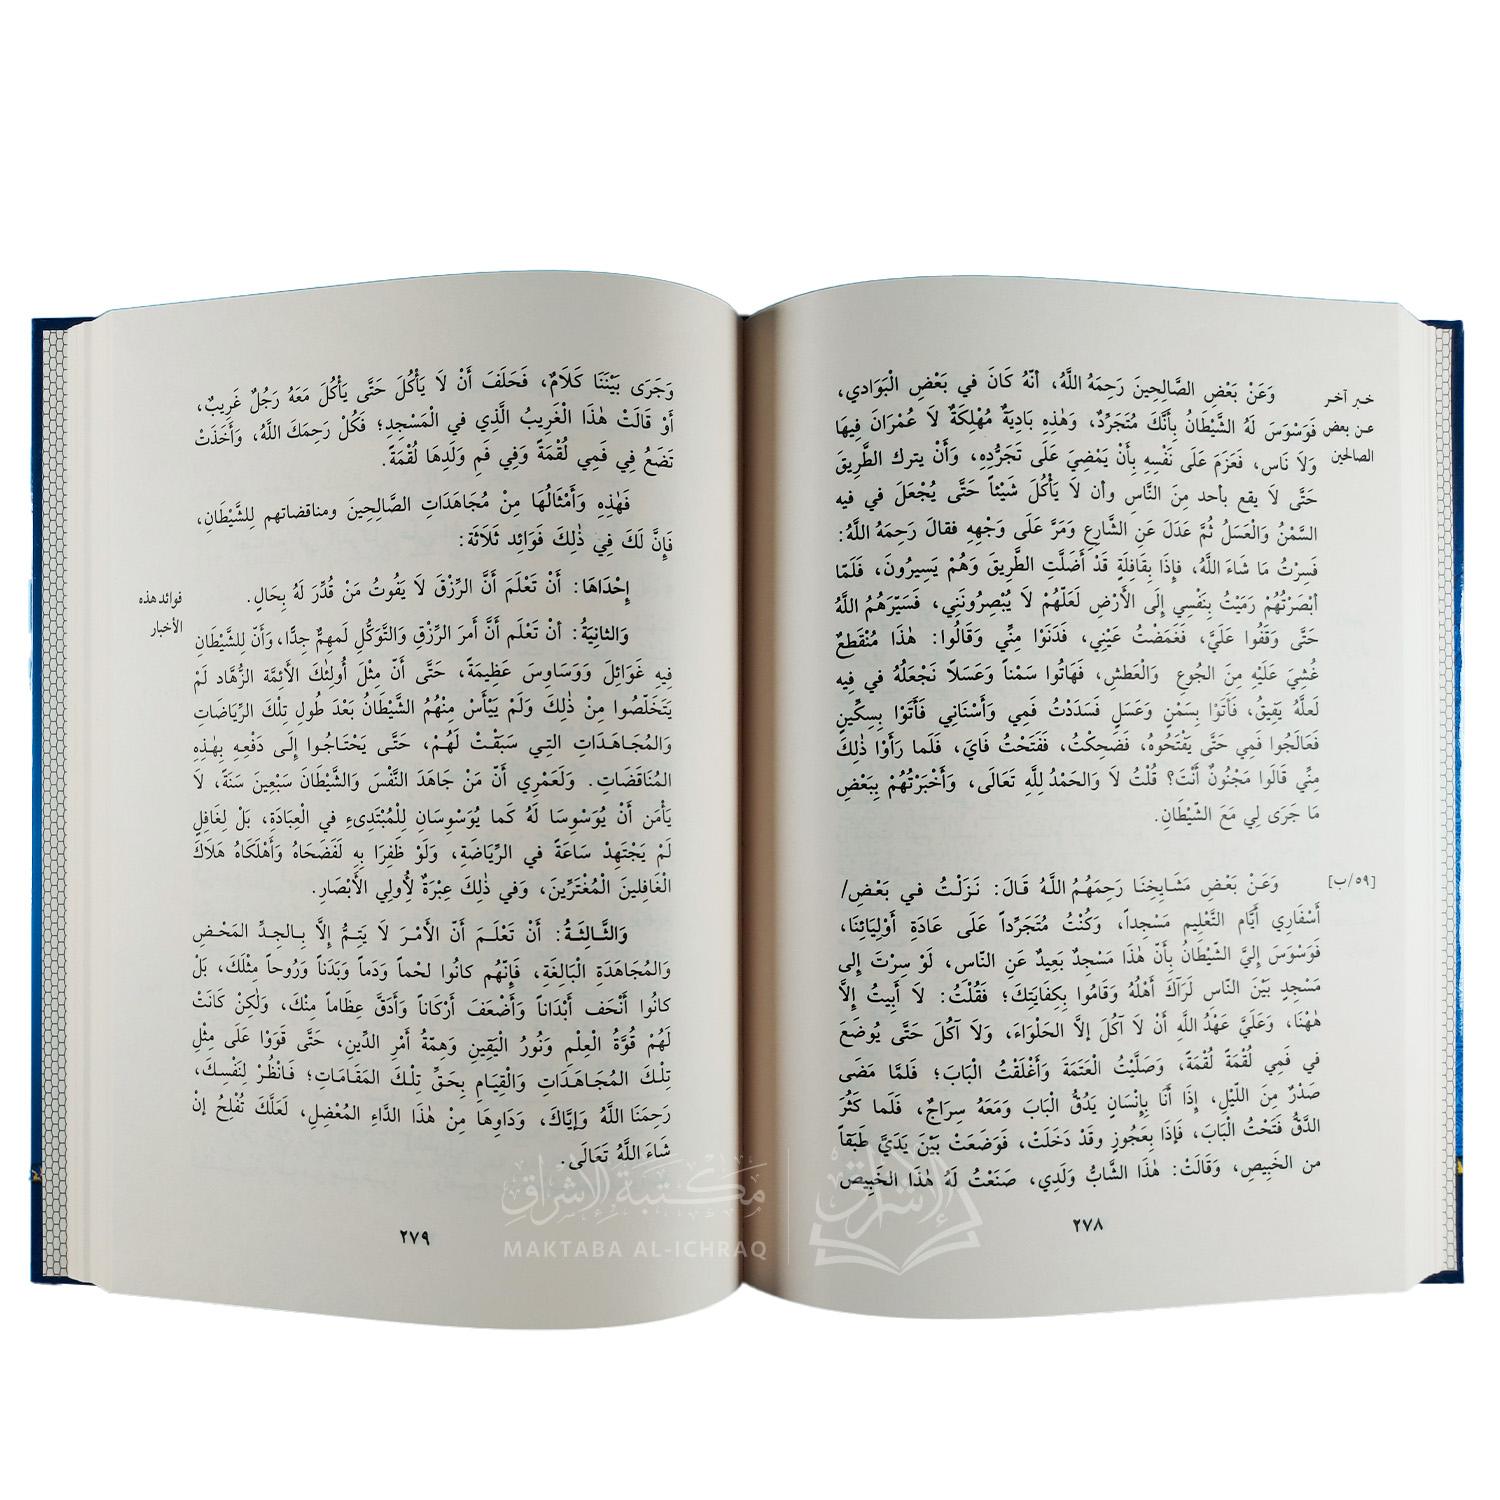 خبر آخر
عن بعض
الصالحين
وَعَنْ بَعْضِ الصَّالِحِينَ رَحِمَهُ اللَّهُ، أنّهُ كَانَ في بَعْضِ الْبَوَادي،
فَوَسْوَسَ لَهُ الشَّيْطَانُ بِأَنَّكَ مُتَجَرِّدٌ، وَهٰذِهِ بَادِيَةٌ مُهْلِكَةٌ لاَ عُمْرَانَ فِيهَا
وَلاَ نَاس، فَعَزَمَ عَلَى نَفْسِهِ بِأَنْ يَمْضِيَ عَلَى تَجَرُّدِهِ، وَأَنْ يترك الطَّرِيقَ
حَتَّى لاَ يقع بأحد مِنَ النَّاسِ وأن لاَ يَأْكُلَ شَيْئاً حَتَّى يُجْعَلَ في فيه
السَّمْنُ وَالْعَسَلُ ثُمَّ عَدَلَ عَنِ الشَّارِعِ وَمَرَّ عَلَى وَجْهِهِ فقالَ رَحِمَهُ اللَّهُ:
فَسِرْتُ مَا شَاءَ اللَّهُ، فَإِذَا بِقَافِلَةٍ قَدْ أَضَلَّتِ الطَّرِيقَ وَهُمْ يَسِيرُونَ، فَلَمّا
أبْصَرْتُهُمْ رَمَيْتُ بِنَفْسِي إِلَى الأَرْضِ لَعَلّهُمْ لاَ يُبْصِرُونَنِي، فَسَيّرَهُمُ اللَّهُ
حَتَّى وَقَفُوا عَلَيَّ، فَغَمَضْتُ عَيْنِي، فَدَنَوْا مِنِّي وَقَالُوا: هٰذا مُنْقَطِعٌ
غُشِيَ عَلَيْهِ مِنَ الجُوعِ وَالْعَطشِ، فَهَاتُوا سَمْناً وَعَسَلاً نَجْعَلُهُ في فِيهِ
لَعلَّهُ يَفِيقُ، فَأتَوْا بِسَمْنٍ وَعَسَلٍ فَسَدَدْتُ فَمِي وَأَسْنَانِي فَأَتَوْا بِسِكِّينٍ
فَعَالَجُوا فَمِي حَتَّى يَفْتَحُوهُ، فَضَحِكْتُ، فَفَتَحْتُ فَايَ، فَلَما رَأَوْا ذٰلِكَ
مِنِّي قَالُوا مَجْنُونٌ أَنْتَ؟ قُلْتُ لاَ وَالْحَمْدُ لِلّهِ تَعَالَى، وَأَخْبَرْتُهُمْ بِبَعْضِ
مَا جَرَى لِي مَعَ الشّيْطَانِ.
[٥٩/ب]
وَعَنْ بَعْضِ مَشَايِخِنَا رَحِمَهُمُ اللَّهُ قَالَ: نَزَلْتُ في بَعْضِ/
أَسْفَارِي أَيَّام التَّعْلِيم مَسْجِداً، وَكُنْتُ مُتَجَرِّداً عَلَى عَادَةِ أَوْلِيَائِنَا،
فَوَسْوَسَ إِليَّ الشّيْطَانُ بِأَنَّ هٰذَا مَسْجِدٌ بَعِيدٌ عَنِ النَّاسِ، لَوْ سِرْتَ إِلى
مَسْجِدٍ بَيْنَ النّاسِ لَرَآكَ أَهْلُهُ وَقَامُوا بِكِفَايَتِكَ؛ فَقُلْتُ: لاَ أَبِيتُ إِلاَّ
هٰهُنَا، وَعَلَيَّ عَهْدُ اللَّهِ أَنْ لاَ آكُلَ إلاَّ الحَلْوَاءَ، وَلاَ آكُلَ حَتَّى يُوضَعَ
في فَمِي لُقْمَةً لُقْمَةً، وَصَلَّيْتُ الْعَتَمَةَ وَأَغْلَقْتُ الْبَابَ؛ فَلمَّا مَضَى
صَدْرٌ مِنَ اللّيْلِ، إِذَا أَنَا بِإِنْسَانٍ يَدُقُّ الْبَابَ وَمَعَهُ سِرَاجٌ، فَلَما كَثُرَ
الدَّقُّ فَتَحْتُ الْبَابَ، فَإِذَا بِعَجُوزٍ وقَدْ دَخَلَتْ، فَوَضَعَتْ بَيْنَ يَدَيَّ طَبَقاً
من الخَبِيصِ، وَقَالَتْ: هٰذَا الشَّابُّ وَلَدِي، صَنَعْتُ لَهُ هٰذَا الخَبِيصَ
٢٧٨
وَجَرَى بَيْنَنَا كَلاَمٌ، فَحَلَفَ أَنْ لاَ يَأْكُلَ حَتَّى يَأْكُلَ مَعَهُ رَجُلٌ غَرِيبٌ،
أَوْ قَالَتْ هٰذَا الْغَرِيبُ الَّذِي في الْمَسْجِدِ؛ فَكُلْ رَحِمَكَ اللَّهُ، وَأَخَذَتْ
تَضَعُ فِي فَمِي لُقْمَةً وَفِي فَمِ وَلَدِهَا لُقْمَةً.
فَهٰذِهِ وَأَمْثَالُهَا مِنْ مُجَاهَدَاتِ الصَّالِحِينَ ومناقضاتهم لِلشَّيْطَانِ،
فَإِنَّ لَكَ فِي ذٰلِكَ فَوَائِد ثَلاَثَة:
فوائد هذه
الأخبار
إِحْدَاهَا: أَنْ تَعْلَمَ أَنَّ الرِّزْقَ لاَ يَفُوتُ مَنْ قُدِّرَ لَهُ بِحَالٍ.
وَالثانِيَةُ: أنْ تَعْلَم أَنَّ أَمرَ الرِّزْقِ وَالتَّوَكُّلِ لَمهِمٌ جِدًّا، وَأَنّ لِلشَّيْطَانِ
فِيهِ غَوَائِلَ وَوَسَاوِسَ عَظِيمَةً، حَتَّى أَنّ مِثْلَ أُولٰئِكَ الأَئِمَّة الزُّهَّاد لَمْ
يَتَخَلّصُوا مِنْ ذٰلِكَ وَلَمْ يَيْأَسْ مِنْهُمُ الشَّيْطَانُ بَعْدَ طُولِ تِلْكَ الرِّيَاضَاتِ
وَالمُجَاهَدَاتِ التِي سَبَقْتْ لَهُمْ، حَتَّى يَحْتَاجُوا إِلَى دَفْعِهِ بِهٰذِهِ
المُنَاقَضَاتِ. وَلَعَمْرِي أَنّ مَنْ جَاهَدَ النَّفْسَ وَالشَّيْطَانَ سَبْعِينَ سَنَةً، لاَ
يَأْمَن أَنْ يُوَسْوِسَا لَهُ كَما يُوَسْوِسَانِ لِلْمُبْتَدِىءِ في العِبَادَةِ، بَلْ لِغَافِلٍ
لَمْ يَجْتَهِدْ سَاعَةً في الرِّيَاضَةِ، وَلَوْ ظَفِرَا بِهِ لَفَضَحَاهُ وَأَهْلَكَاهُ هَلاَكَ
الْغَافِلينَ الْمُغْتَرِّينَ، وَفي ذٰلِكَ عِبْرَةٌ لأُولِي الأَبْصَارِ.
وَالثَّالِثَةُ: أَنْ تَعْلَمَ أَنّ الأَمْرَ لاَ يَتِمُّ إِلاَّ بِالجِدِّ المَحْضِ
وَالمُجَاهَدَةِ الْبَالِغَةِ، فَإِنّهُم كانُوا لحْماً وَدَماً وَبَدَناً وَرُوحاً مِثْلَكَ، بَلْ
كانُوا أَنْحَف أَبْدَاناً وَأَضْعَفَ أَرْكَاناً وَأَدَقَّ عِظَاماً مِنْكَ، وَلٰكِنْ كَانَتْ
لَهُمْ قُوَّةُ الْعِلْمِ وَنُورُ الْيَقِينِ وَهِمّةُ أَمْرِ الدِّينِ، حَتَّى قَوَوْا عَلَى مِثْلِ
تِلْكَ المُجَاهَدَاتِ وَالْقِيَامِ بِحَقِّ تِلْكَ المَقَامَاتِ؛ فَانْظُرْ لِنَفْسِكَ،
رَحِمَنَا اللَّهُ وَإِيَّاكَ، وَدَاوِهَا مِنْ هٰذَا الدَّاءِ المُعْضِلِ، لَعَلَّكَ تُفْلِحُ إنْ
شَاءَ اللَّهُ تَعَالَى.
٢٧٩
مكتبة الإشراق
MAKTABA AL-ICHRAQ
الإشراق